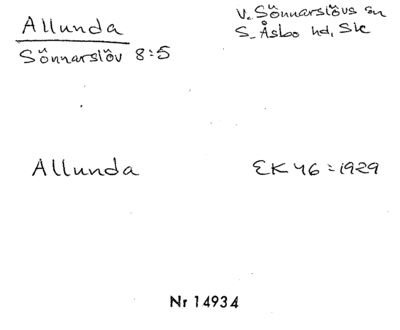 Allunda
Sönnarslöv 8:5
V. Sönnarslövs sn
S. Åsbo hd, Sk
Allunda
EK 46 = 1929
Nr 14934